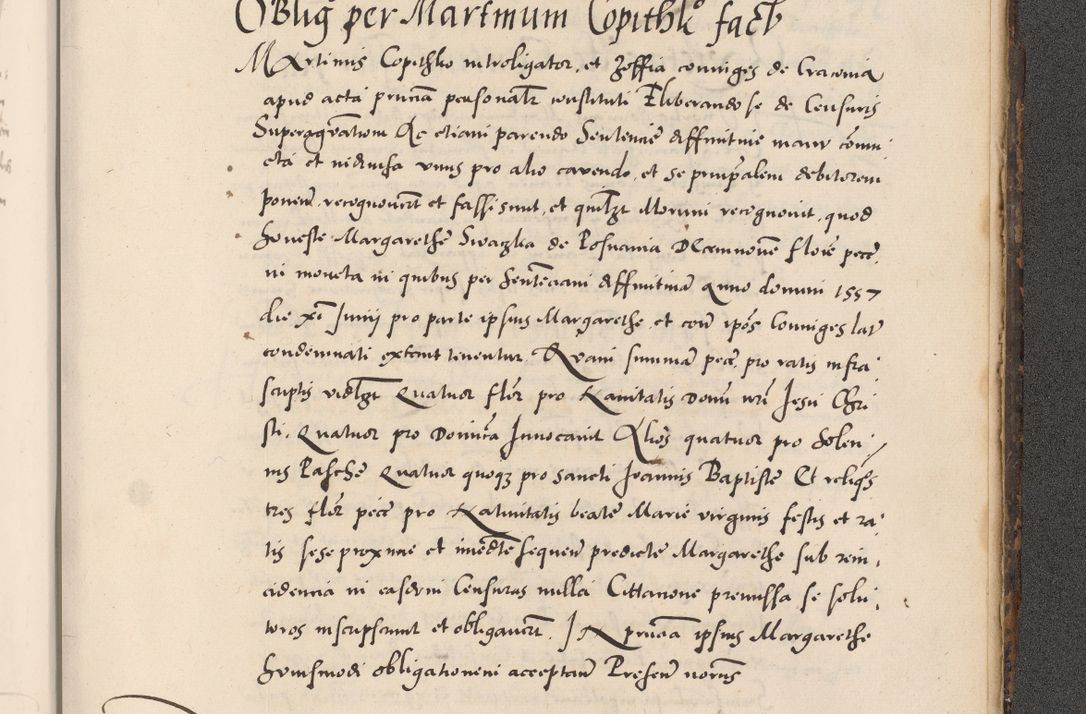 Oblig per Martinum Copithko fact
Martinus Copithko introligator, et Zoffia coniuges de Cracovia
apud acta princia personalr constituti Eliberando se de Censuris
Superagravatiom Ac etiam parendo Sentencie diffinitive
cta et indivisa unus pro alio cavendo, et se principalem debitorem
ponen, recognovert et fassi sunt, et quilzt illorum recognovit, quod
honeste Margarethe Swaczka de Posnania Decemnovem flore pece,
in moneta in quibus per Sentenciam diffinitiva Anno domini 1557
die xi Junij pro parte ipsius Margarethe, et con ipos Coniuges lat
condemnati extent tenentur. Quam summam pece, pro ratis infra
scriptis videlzt Quatuor flor pro Nativitatis Domi nri Jesu Chri
sti, Quatuor pro Dominica Invocavit Alios quatuor pro Solen
nis Pasche Quatuor quoqz pro sancti Joannis Baptiste Et reliqs
tres flor pece pro Nativitatis beate Marie virginis festis et ra
tis sese proxime et imedte sequen predicte Margarethe sub rein
cidencia in easdem Censuras nulla Cittacione premissa se solu
turos inscripserunt et obligavert. In princia ipsius Margarethe
huiusmodi obligationem acceptan Presen